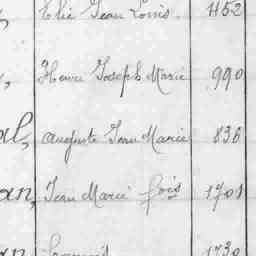 Elie Jean Louis. 1152
Henri Joseph Marie 990
al, Auguste Jean Marie 836
an, Jean Marie fois 1701
an François 1730